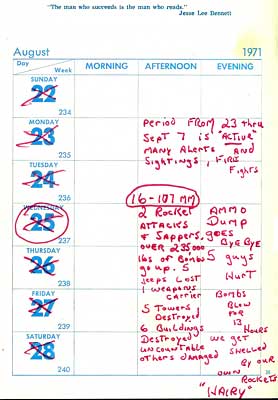 "The man who succeeds is the man who reads."
Jesse Lee Bennett
August 1971
Day Week MORNING AFTERNOON EVENING
SUNDAY
22
234
MONDAY
23
235
Period FROM 23 thru
Sept 7 is "Active"
MANY Alerts AND
Sightings, Fire
Fights
TUESDAY
24
236
16-107 MM
WEDNESDAY
25
237
2 Rocket
ATTACKS
& SAPPERS,
OVER 235,000
lbs of Bombs
go up. 5
Jeeps Lost
1 weapons
Carrier
5 Towers
Destroyed
6 Buildings
Destroyed
uncountable
others damaged
AMMO
Dump
goes
Bye Bye
5 guys
Hurt
Bombs
Blow
FOR
13
Hours
we get
shelled
By our
own
Rockets
"HAIRY"
THURSDAY
26
238
FRIDAY
27
239
SATURDAY
28
240